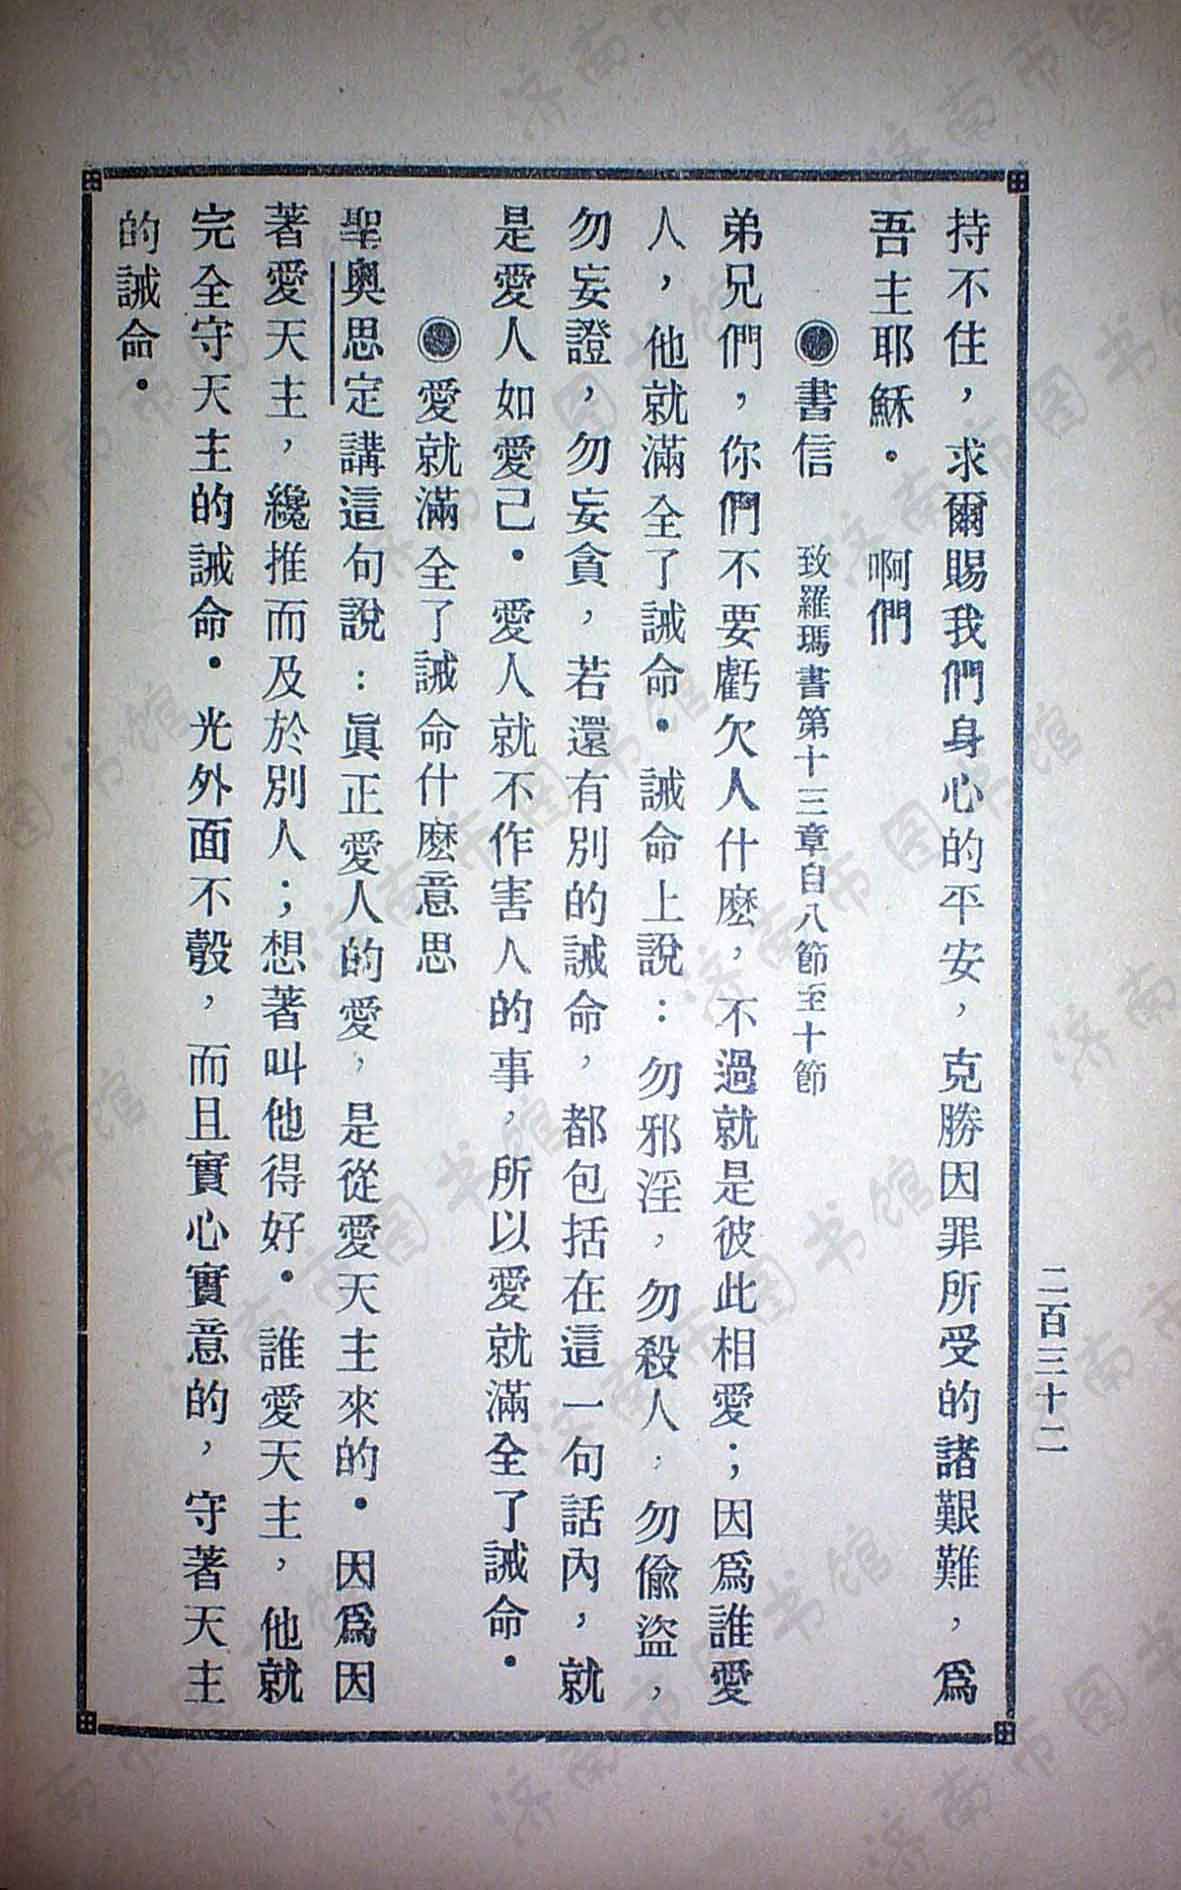 持不住，求爾賜我們身心的平安，克勝因罪所受的諸艱難，爲
吾主耶穌．　啊們
◉書信　致羅瑪書第十三章自八節至十節
弟兄們，你們不要虧欠人什麽，不過就是彼此相愛；因爲誰愛
人，他就滿全了誡命．誡命上說：勿邪淫，勿殺人，勿偸盜，
勿妄證，勿妄貪，若還有別的誡命，都包括在這一句話內，就
是愛人如愛己．愛人就不作害人的事，所以愛就滿全了誡命．
◉愛就滿全了誡命什麽意思
聖奧思定講這句說：眞正愛人的愛，是從愛天主來的．因爲因
著愛天主，纔推而及於別人；想著叫他得好．誰愛天主，他就
完全守天主的誡命．光外面不彀，而且實心實意的，守著天主
的誡命．
二百三十二
济南市图书馆